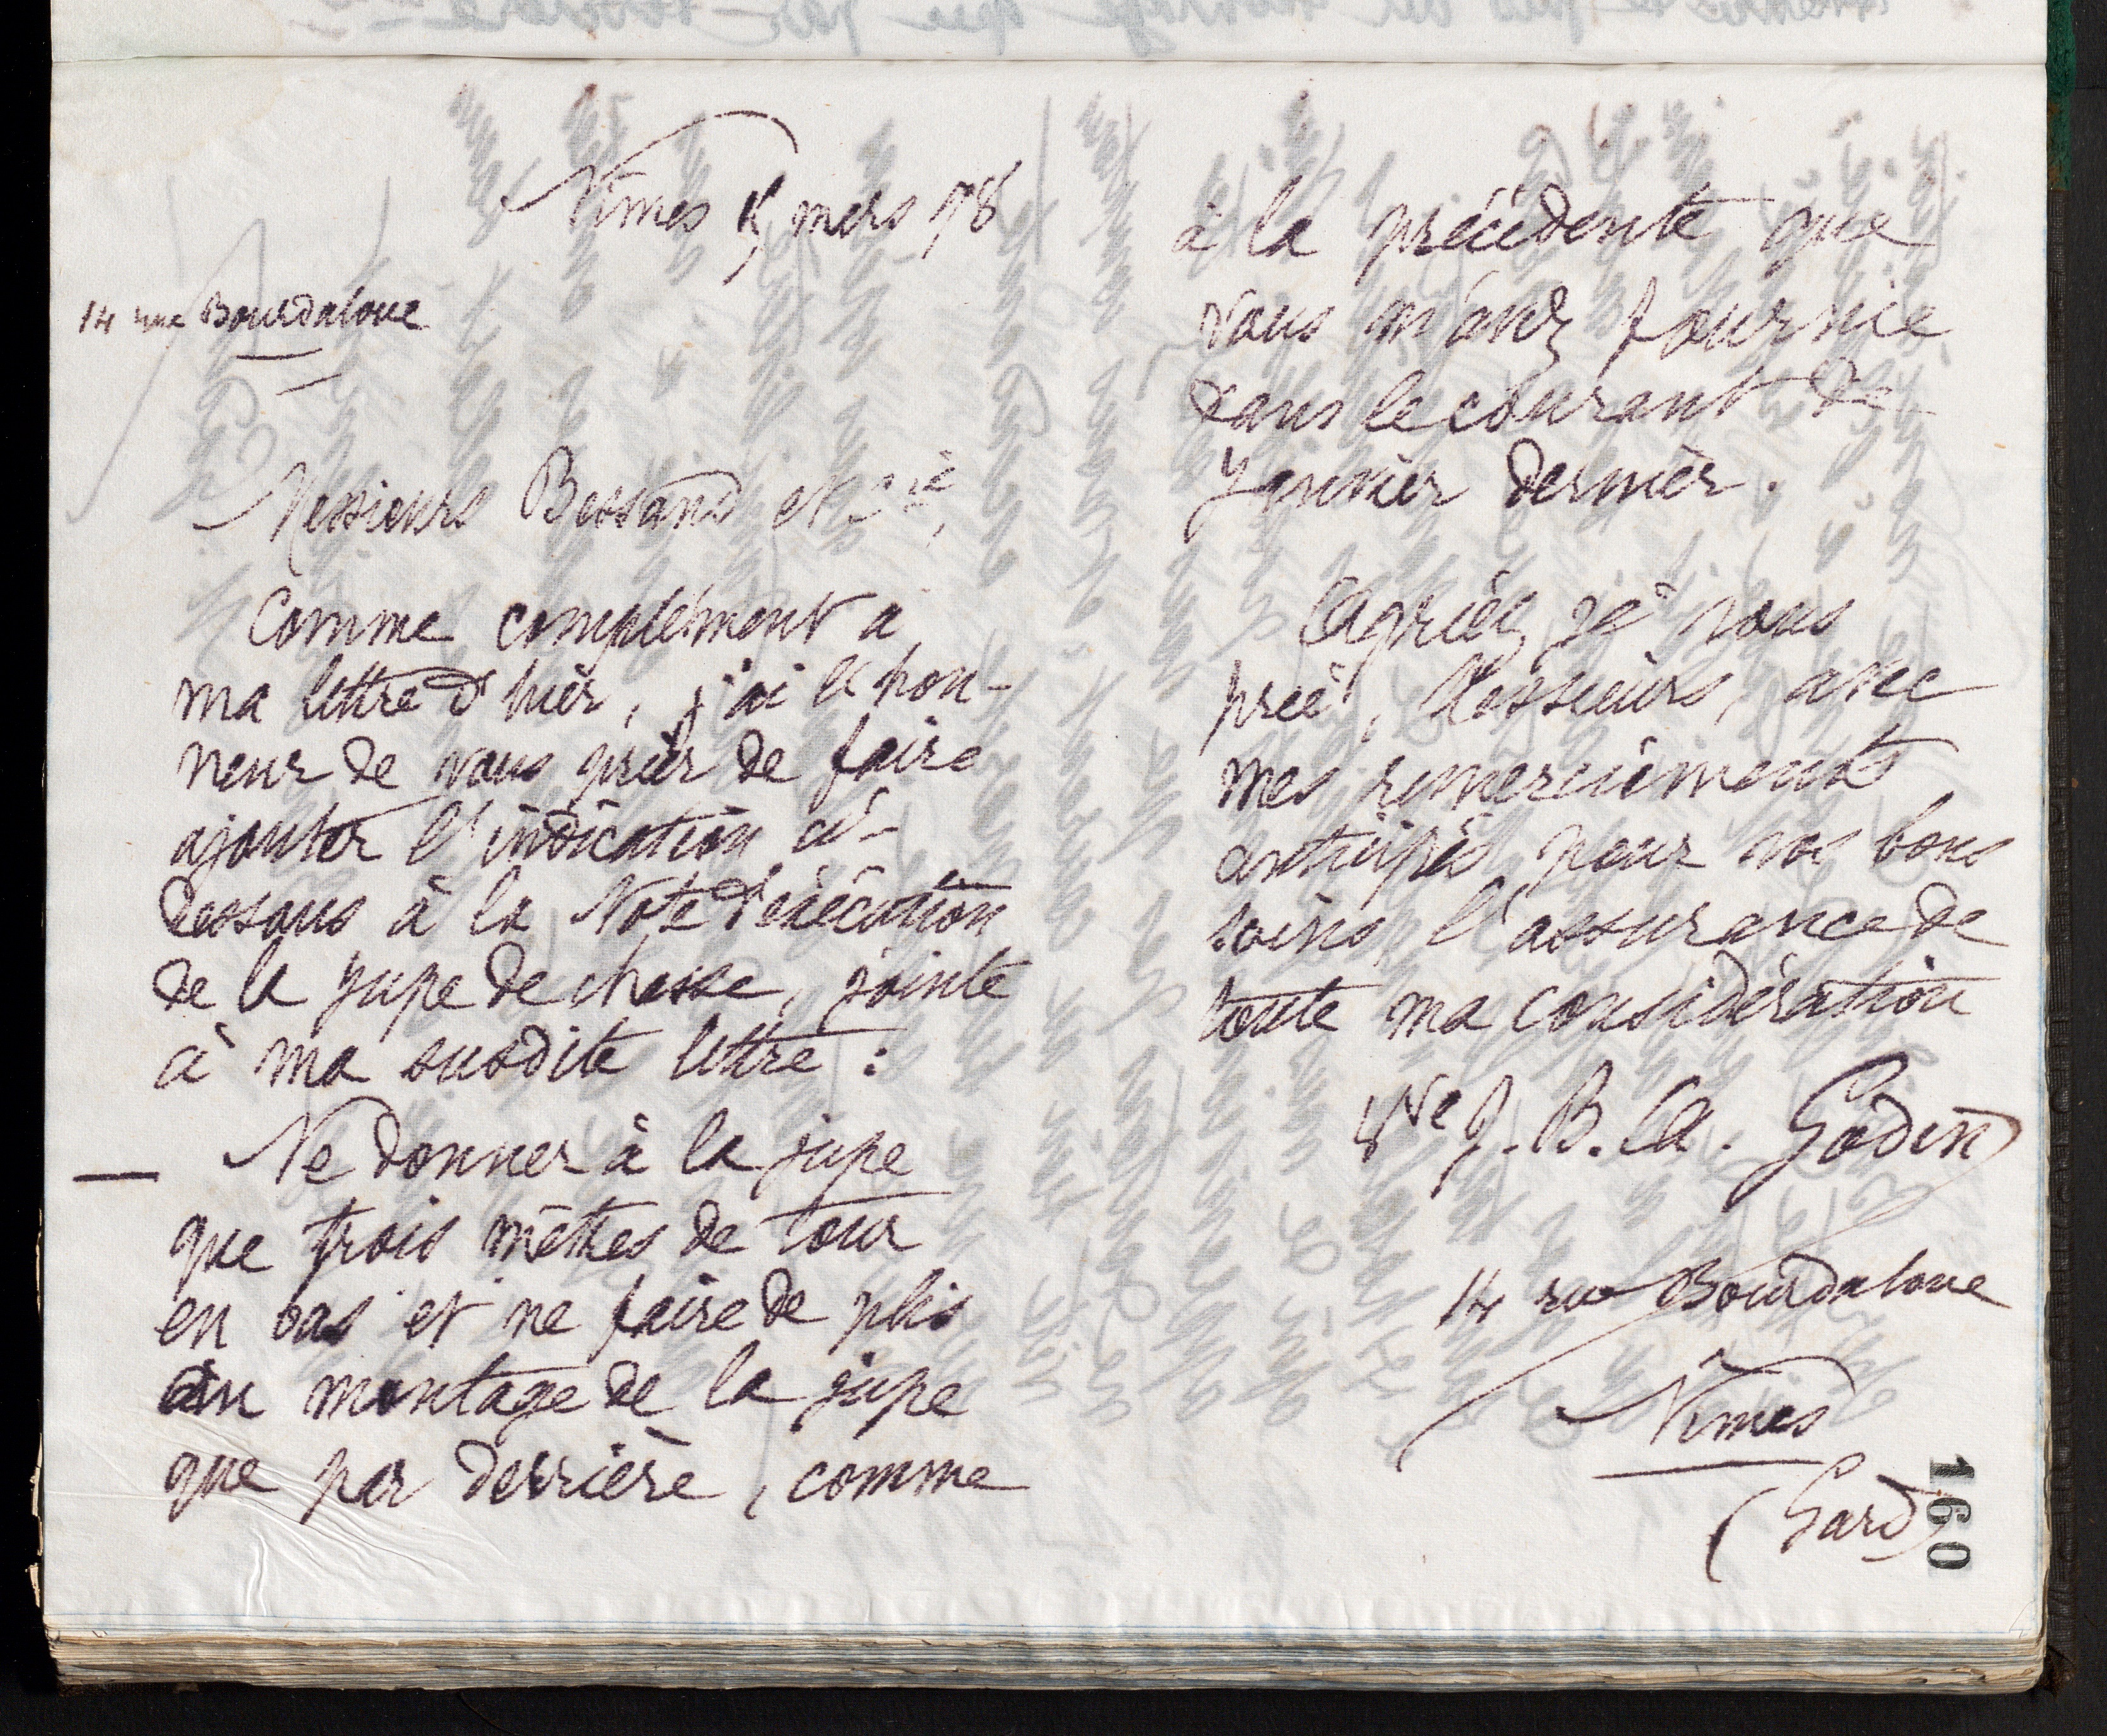 Nîmes 15 mars 98
14 rue Bourdaloue
Messieurs Bessand et Cie,
Comme complément à
ma lettre d'hier, j'ai l'hon-
neur de vous prier de faire
ajouter l'indication ci-
dessous à la Note d'exécution
de la jupe de chasse, jointe
à ma susdite lettre :
— Ne donner à la jupe
que trois mètres de tour
en bas et ne faire de plis
au montage de la jupe
que par derrière, comme
à la précédente que
vous m'avez fournie
dans le courant de
Janvier dernier.
Agréez, je vous
prie, Messieurs, avec
mes remerciements
anticipés pour vos bons
soins, l'assurance de
toute ma considération
Vve J. B. A. Godin
14 rue Bourdaloue
Nîmes
(Gard)
160